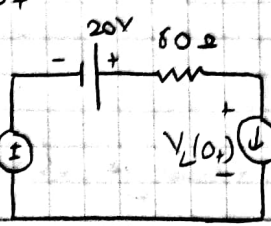 20V
- +
60Ω
+
V_L(0+)
-
±